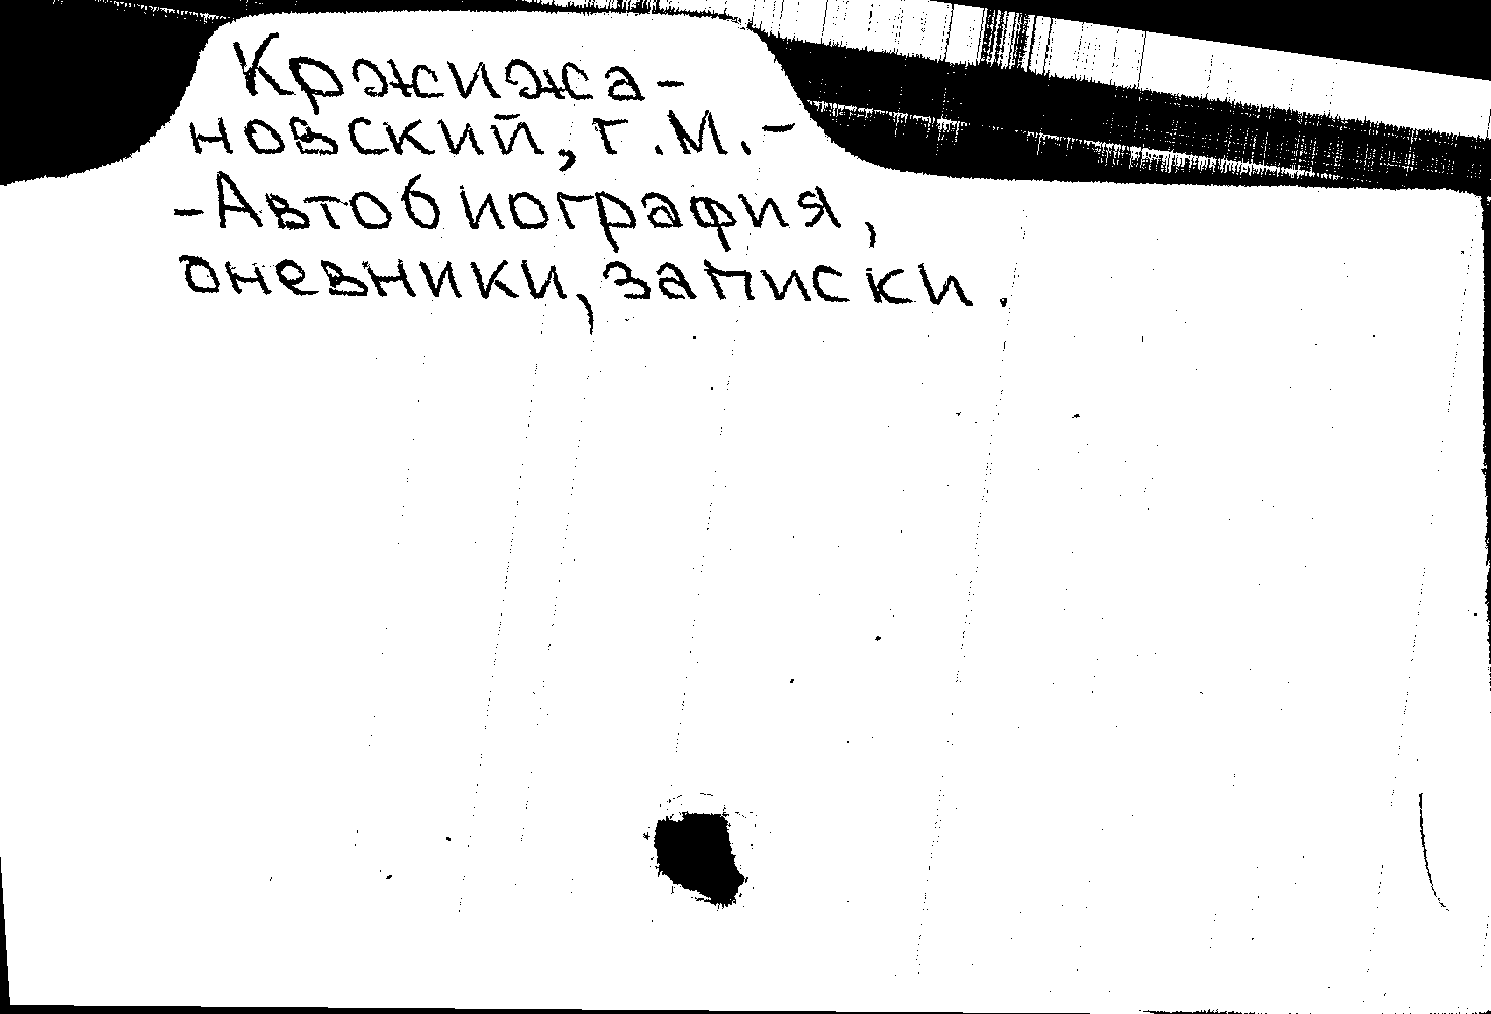 Кржижа-
новский, Г.М.-
-Автобиография,
дневники, записки.